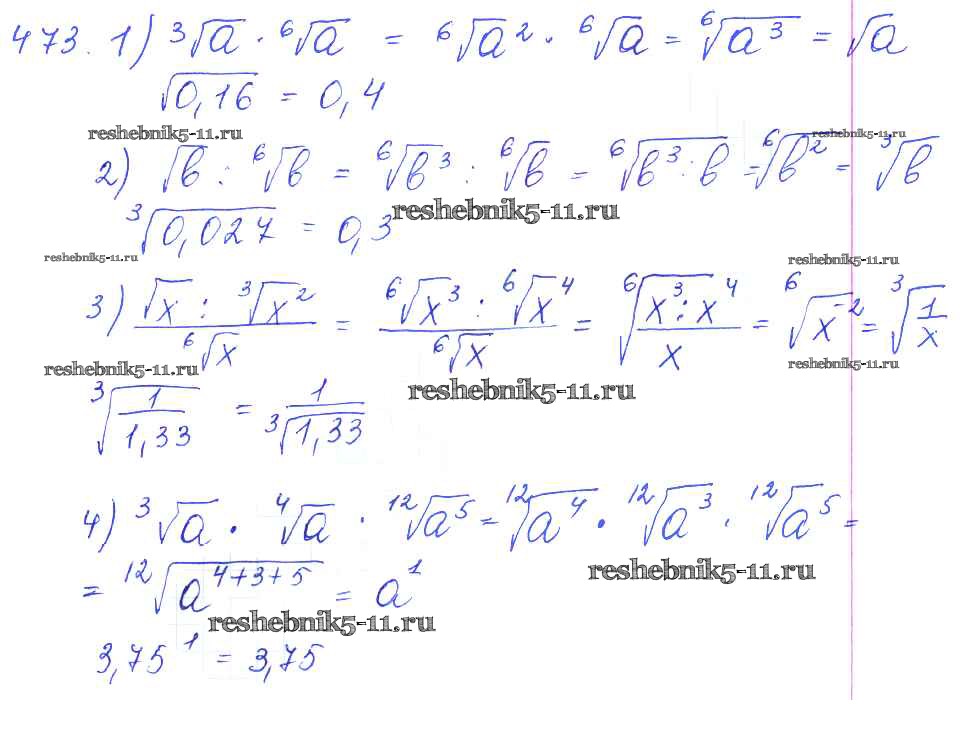 473. 1) ³√a · ⁶√a = ⁶√a² · ⁶√a = ⁶√a³ = √a
√0,16 = 0,4
reshebnik5-11.ru reshebnik5-11.ru
2) √b : ⁶√b = ⁶√b³ : ⁶√b = ⁶√b³ : b = ⁶√b² = ³√b
reshebnik5-11.ru
³√0,027 = 0,3
reshebnik5-11.ru reshebnik5-11.ru
3) (√x : ³√x²)/(⁶√x) = (⁶√x³ : ⁶√x⁴)/(⁶√x) = ⁶√((x³ : x⁴)/x) = ⁶√x⁻² = ³√(1/x)
reshebnik5-11.ru reshebnik5-11.ru
reshebnik5-11.ru
³√(1/1,33) = 1/(³√1,33)
4) ³√a · ⁴√a · ¹²√a⁵ = ¹²√a⁴ · ¹²√a³ · ¹²√a⁵ =
reshebnik5-11.ru
= ¹²√a⁴⁺³⁺⁵ = a¹
reshebnik5-11.ru
3,75¹ = 3,75